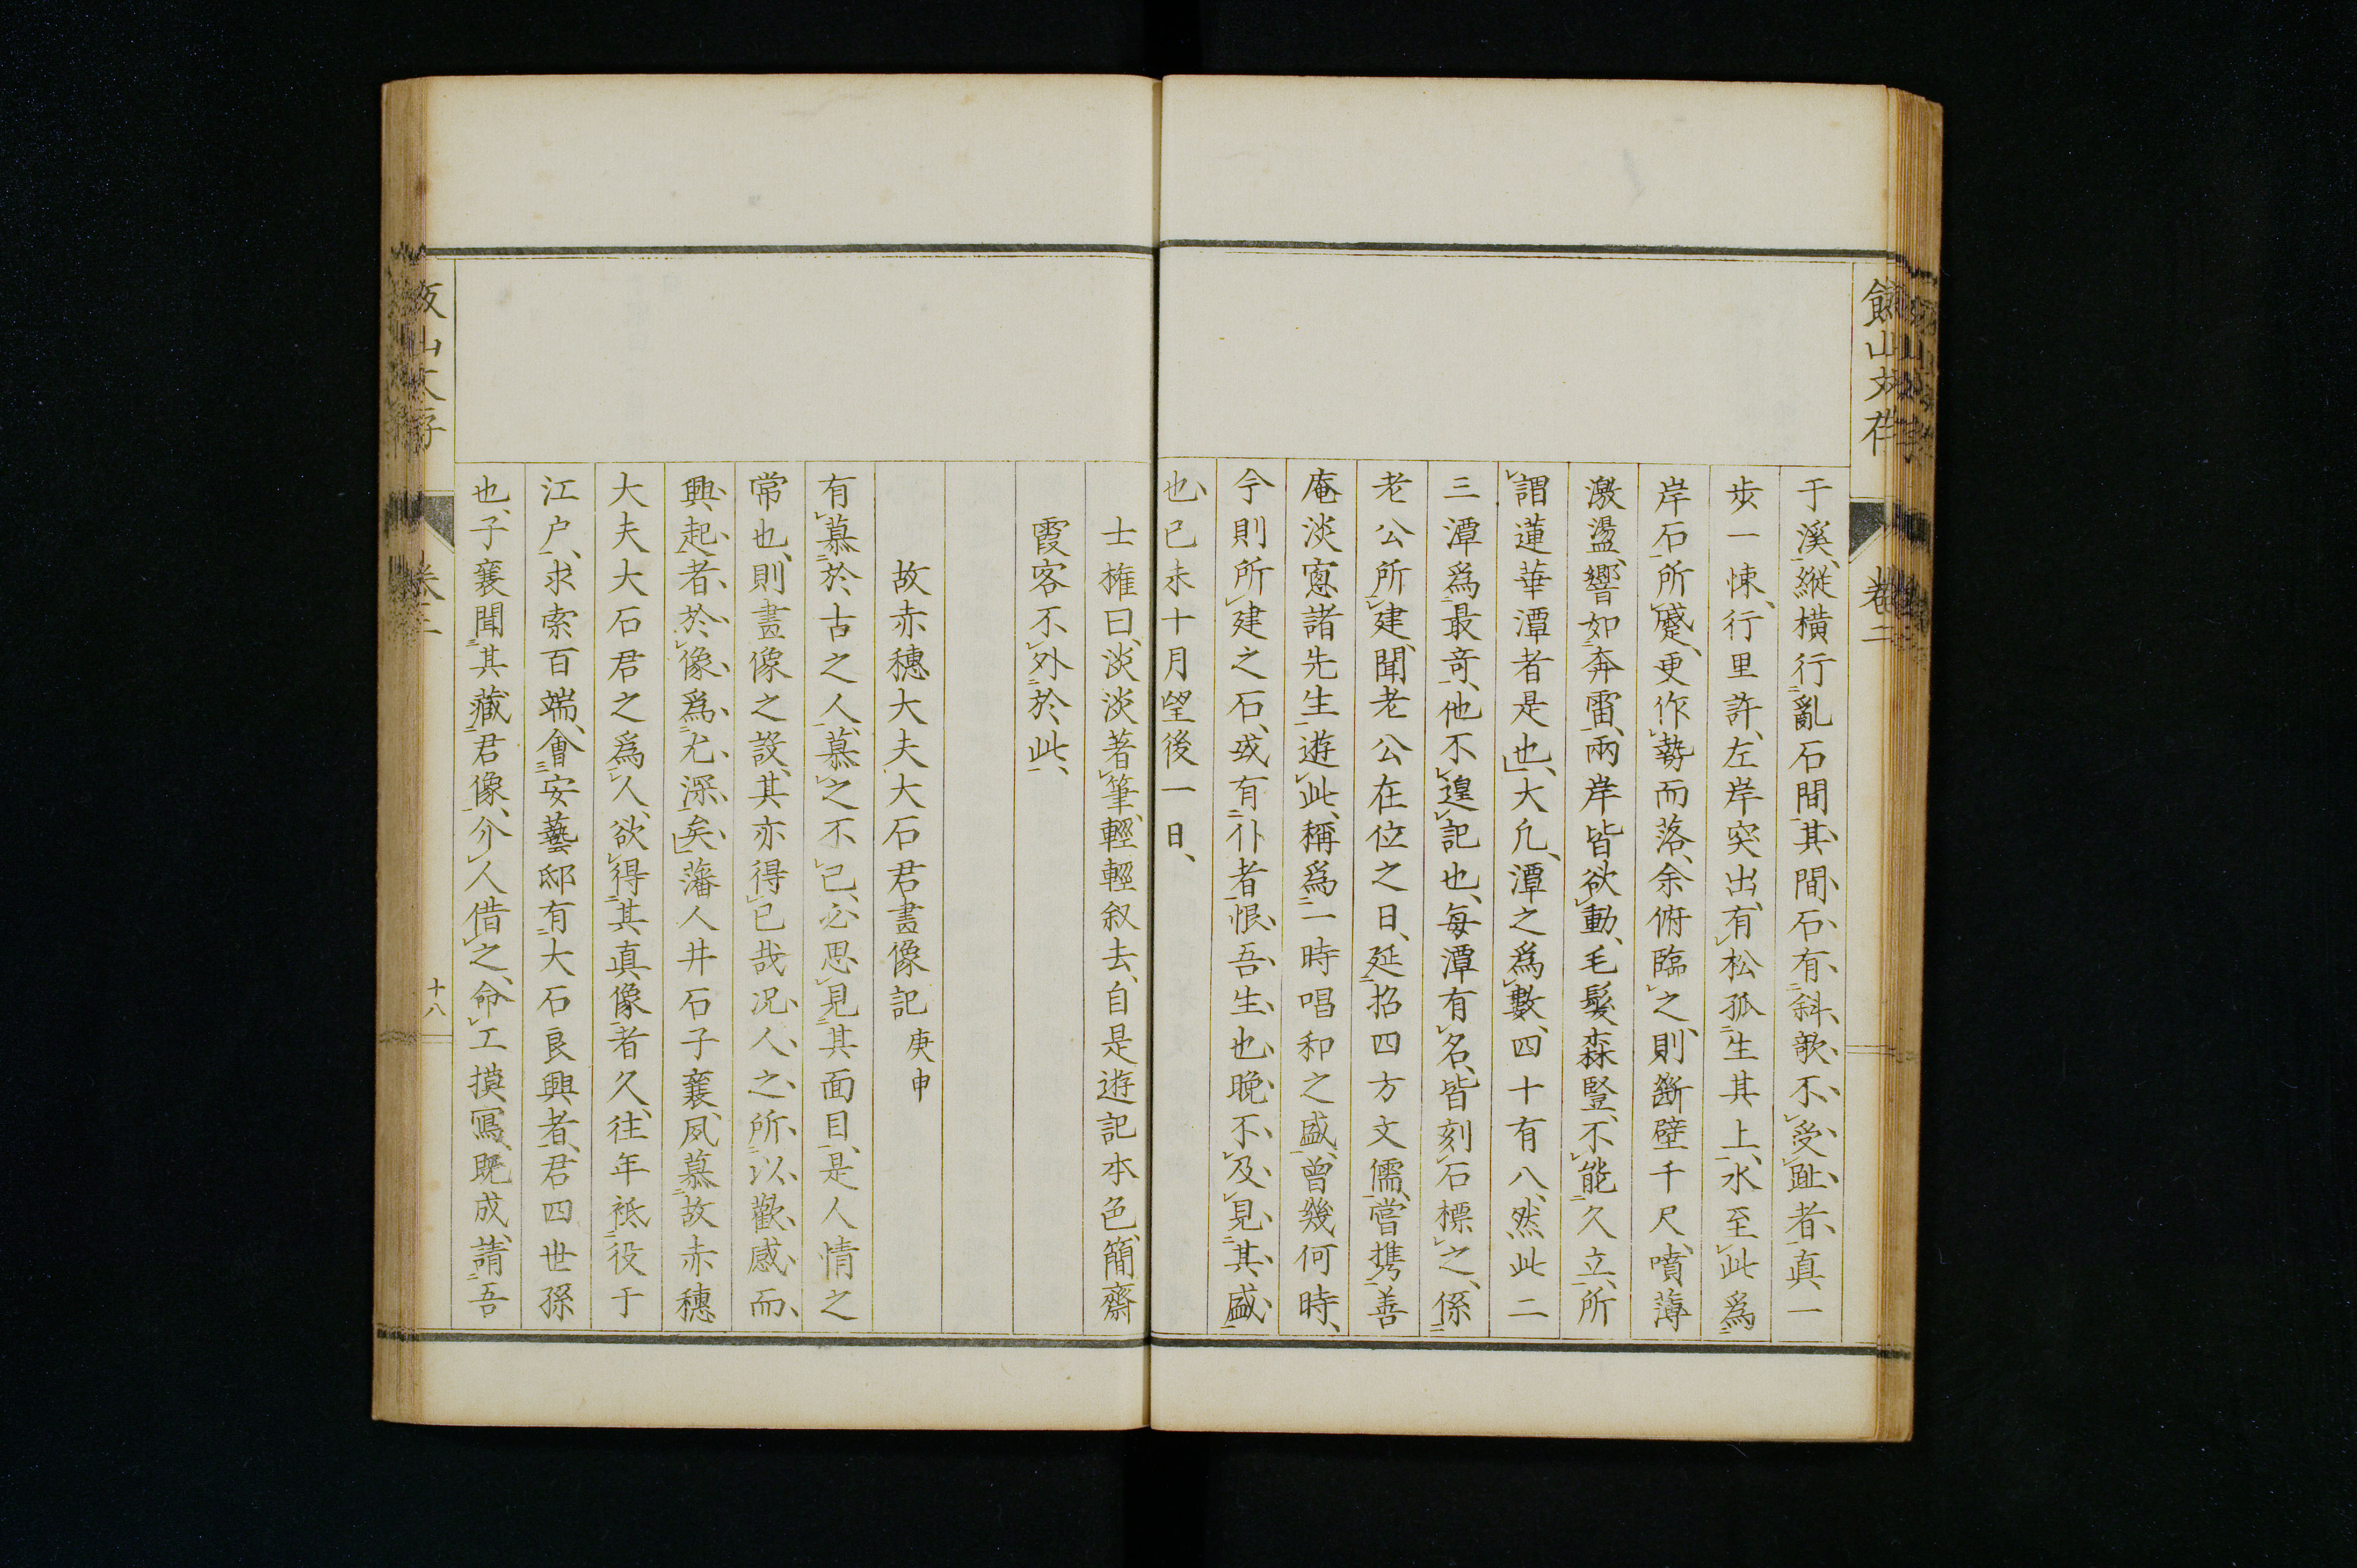 于溪、縱橫行亂石間、其、間、石、有、斜、欹、不、受、趾、者、真一
歩一悚、行里許、左岸突出、有松孤生其上、水至此爲
岸石所蹙、更作勢而落、余俯臨之、則斷壁千尺、噴薄
激盪、響如奔雷、兩岸皆欲動、毛髮森豎、不能久立、所
謂蓮華潭者是也、大凢、潭之爲數、四十有八、然此二
三潭爲最竒、他不遑記也、每潭有名、皆刻石標之、係
老公所建、聞老公在位之日、延招四方文儒、嘗携善
庵淡窻諸先生遊此、稱爲一時唱和之盛、曾幾何時、
今則所建之石、或有仆者、恨、吾、生、也、晚、不、及、見、其、盛、
也、已未十月望後一日、
士㩁曰、淡淡著筆、輕輕叙去、自是遊記本色、簡齋
霞客不外於此、
故赤穗大夫大石君畫像記 庚申
有慕於古之人、慕之不已、必思見其面目、是人情之
常也、則畫像之設、其亦得已哉况、人、之、所、以、歡、感、而、
興、起、者、於、像、爲、尤、深、矣、藩人井石子襄、夙慕故赤穗
大夫大石君之爲人、欲得其真像者久、往年祗役于
江户、求索百端、會安藝邸有大石良興者、君四世孫
也、子襄聞其藏君像、介人借之、命工摸寫、既成、請吾
山文存
卷二
十八
卷二